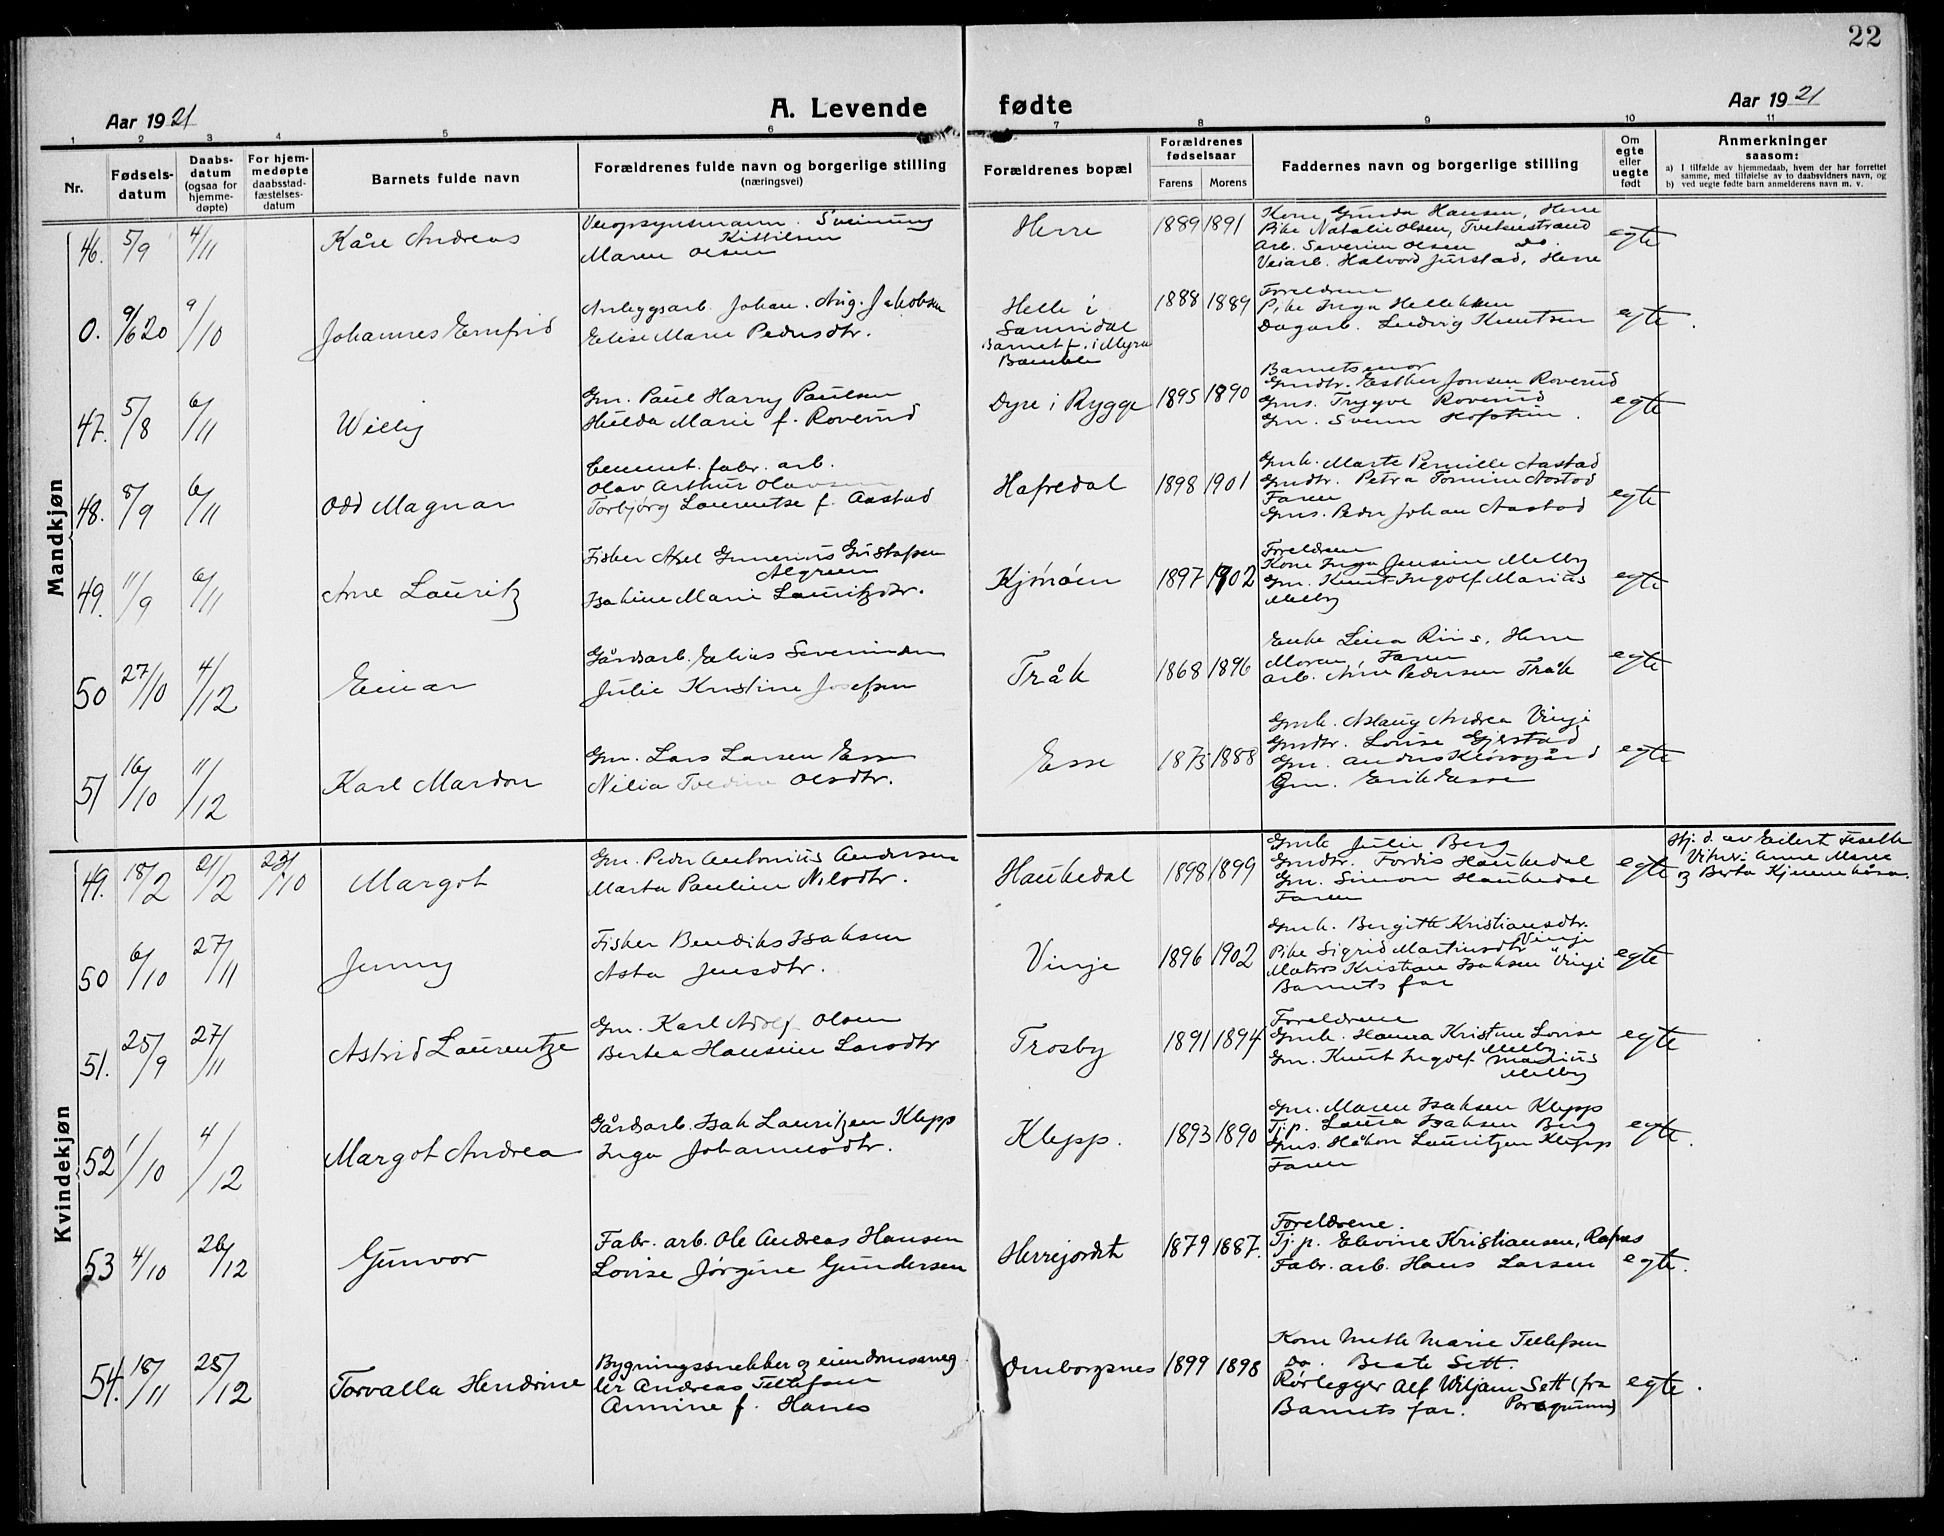 22
Aar 1921
A. Levende fødte
Aar 1921
1 2 3 4 5 6 7 8 9 10 11
Nr.
Fødsels-
datum
Daabs-
datum
(ogsaa for
hjemme-
døpte)
For hjem-
medøpte
daabsstad-
fæstelses-
datum
Barnets fulde navn
Forældrenes fulde navn og borgerlige stilling
(næringsvei)
Forældrenes bopæl
Forældrenes
fødselsaar
Farens Morens
Faddernes navn og borgerlige stilling
Om
egte
eller
uegte
født
Anmerkninger
saasom:
a) I tilfælde av hjemmedaab, hvem der har forrettet
samme, med tilføielse av to daabsvidners navn, og
b) ved uegte fødte barn anmelderens navn m. v.
Mandkjøn
46. 5/9 4/11
Kåre Andreas
Veiopsynsmann. Sveinung
Kittilsen
Maren Olsen
Herre
1889 1891
Kone Gunda Hansen, Herre
Pike Natalie Olsen, Tvetenstrand
Arb. Severin Olsen do.
Veiarb. Halvord Jurstad, Herre
egte
0. 9/6 20 9/10
Johannes Ernfrid
Anleggsarb. Johan. Aug. Jakobsen
Elise Marie Pedersdtr.
Helle i
Sannidal
Barnet f. i Myra
Bamble
1888 1889
Foreldrene
Pike Inga Helleksen
Dagarb. Ludvig Knutsen
egte.
47. 5/8 6/11
Willy
Gm. Paul Harry Paulsen
Hulda Marie f. Roverud
Dyre i Rygge
1895 1890
Barnets mor
Gmdtr. Esther Jonsen Roverud
Gms. Trygve Roverud
Gm. Svenn Hofstun.
egte
48. 8/9 6/11
Odd Magnar
Cement. fabr. arb.
Olav Arthur Olavsen
Torbjørg Laurentze f. Aastad
Hafredal
1898 1901
Gmk. Marte Pernille Aastad
Gmdtr. Petra Tomine Aastad
Faren
Gms. Peder Johan Aastad
egte
49. 11/9 6/11
Arne Lauritz
Fisker Axel Gunerius Gustafsen
Algreen
Isakine Marie Lauritzdtr.
Kjønøen
1897 1902
Foreldrene
Kone Inga Jensine Melby
Gm. Knut Ingolf Marius
Melby
egte
50 27/10 4/12
Einar
Gårdsarb. Elias Severinsen
Julie Kristine Josefsen
Tråk
1868 1896
Enke Lina Riis, Herre
Moren, Faren
arb. Arne Pedersen Tråk
egte
51 16/10 11/12
Karl Mardon
Gm. Lars Larsen Esse
Nilia Olsdtr.
Esse
1875 1888
Gmk. Aslaug Andrea Vinje
Gmdtr. Louise Gjerstad
Gm. Anders Kloosgård
Gm. Erik Esse
egte
Kvindekjøn
49. 18/2 21/2 23/10
Margot
Gm. Peder Antonius Andersen
Marta Pauline Nilsdtr.
Haukedal
1898 1899
Gmk Julie Berg
Gmdtr. Tordis Haukedal
Gm. Simon Haukedal
Faren
egte
Hj. d. av Eilert Feselle
Vitner: Anne Marie
og Berta Kjennekåsa.
50 6/10 27/11
Jenny
Fisker Bendiks Isaksen
Asta Jensdtr.
Vinje
1896 1902
Gmk. Bergitte Kristiansdtr.
Vinje
Pike Sigrid Martinsdtr "
Matros Kristian Isaksen Vinje
Barnets far
egte
51. 25/9 27/11
Astrid Laurentze
Gm. Karl Adolf Olsen
Bertea Hansine Larsdtr
Trosby
1891 1894
Foreldrene
Gmk. Hanna Kristine Lovise
Melby
Gm. Knut Ingolf Marius
Melby
egte
52 1/10 4/12
Margot Andrea
Gårdsarb. Isak Lauritzen Klepp
Inga Johannesdtr.
Klepp.
1893 1890
Gm. Maren Isaksen Klepp
Tj. p. Laura Isaksen Berg
Gms. Håkon Lauritzen Klepp
Faren
egte.
53 4/10 26/12
Gunvor
Fabr. arb. Ole Andreas Hansen
Lovise Jørgine Gundersen
Herrejordet
1879 1887.
Foreldrene.
Tj. p. Elevine Kristiansen, Rafnes
Fabr. arb. Hans Larsen
egte.
54. 18/11 25/12
Torvalla Hendrine
Bygningssnekker og eiendomsmeg
ler Andreas Tellefsen
Annine f. Hanes
Omborgsnes
1899 1898
Kone Mette Marie Tellefsen
Do. Beate Sett.
Rørlegger Alf Wiljam Sett (fra
Barnets far. Porsgrunn)
egte.